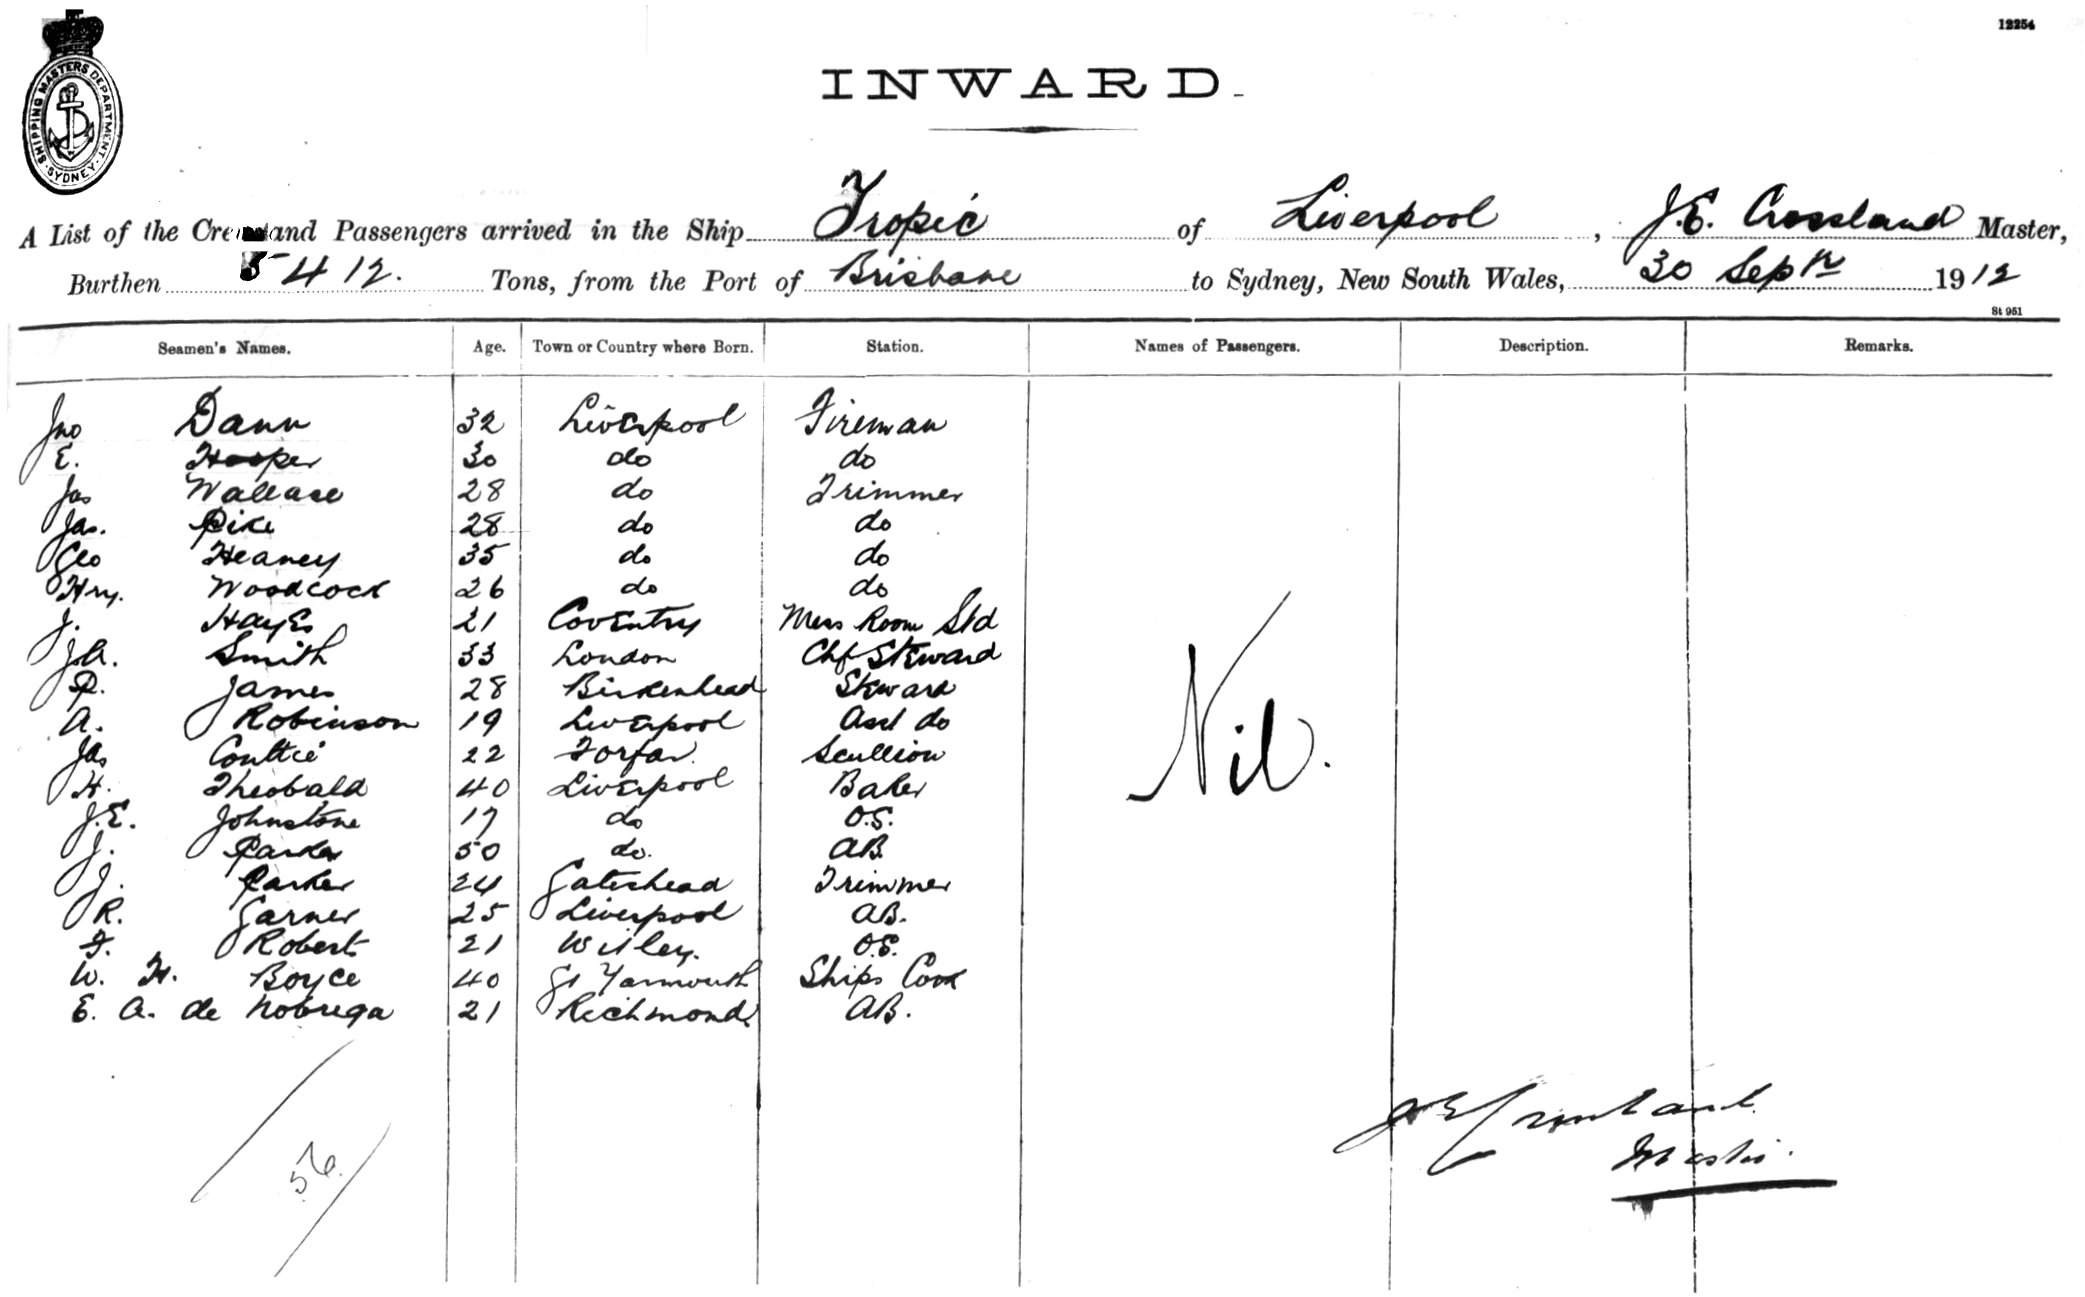 12254
SHIPPING MASTERS DEPARTMENT
SYDNEY
INWARD
A List of the Crew and Passengers arrived in the Ship Tropic of Liverpool, J.E. Crossland Master,
Burthen 5412. Tons, from the Port of Brisbane to Sydney, New South Wales, 30 Sepr 1912
St 951
Seamen's Names. Age. Town or Country where Born. Station. Names of Passengers. Description. Remarks.
Jno Dann 32 Liverpool Fireman
E. Hooper 30 do do
Jas Wallace 28 do Trimmer
Jas. Pike 28 do do
Geo Heaney 35 do do
Hry. Woodcock 26 do do
J. Hayes 21 Coventry Mess Room Std
J.A. Smith 33 London Chf Steward
P. James 28 Birkenhead Steward
A. Robinson 19 Liverpool Asst do
Jas Coultie 22 Forfar. Scullion
H. Theobald 40 Liverpool Baker
J.E. Johnstone 17 do O.S.
J. 50 do. AB
J. Parker 24 Gateshead Trimmer
R. Garner 25 Liverpool AB.
F. Roberts 21 Witley. O.S.
W. H. Boyce 40 Gt Yarmouth Ships Cook
E. A. de Nobrega 21 Richmond. AB.
Nil.
56.
J E Crossland.
Master.